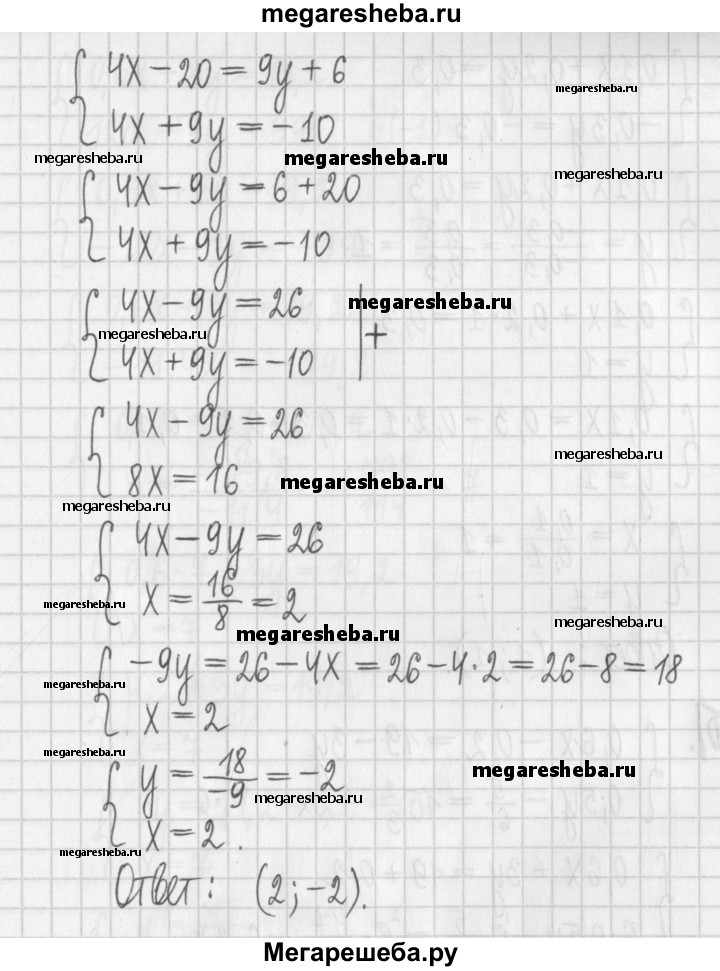 megaresheba.ru
4x - 20 = 9y + 6
megaresheba.ru
4x + 9y = -10
megaresheba.ru megaresheba.ru
4x - 9y = 6 + 20
megaresheba.ru
4x + 9y = -10
4x - 9y = 26
megaresheba.ru
megaresheba.ru +
4x + 9y = -10
4x - 9y = 26
megaresheba.ru
8x = 16
megaresheba.ru
megaresheba.ru
4x - 9y = 26
x = 16/8 = 2
megaresheba.ru
megaresheba.ru
megaresheba.ru
-9y = 26 - 4x = 26 - 4·2 = 26 - 8 = 18
megaresheba.ru
x = 2
megaresheba.ru
y = 18/-9 = -2
megaresheba.ru
megaresheba.ru
x = 2.
megaresheba.ru
Ответ: (2; -2).
Мегарешеба.ру